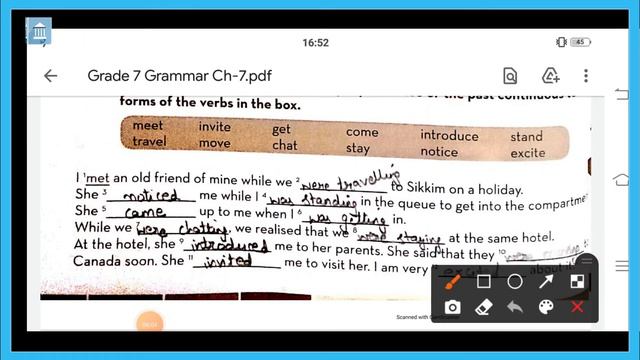 16:52
45
Grade 7 Grammar Ch-7.pdf
forms of the verbs in the box.
meet invite get come introduce stand
travel move chat stay notice excite
I ¹met an old friend of mine while we ² were travelling to Sikkim on a holiday.
She ³ noticed me while I ⁴ was standing in the queue to get into the compartme
She ⁵ came up to me when I ⁶ was getting in.
While we ⁷ were chatting, we realised that we ⁸ were staying at the same hotel.
At the hotel, she ⁹ introduced me to her parents. She said that they ¹⁰ were
Canada soon. She ¹¹ invited me to visit her. I am very excited about it